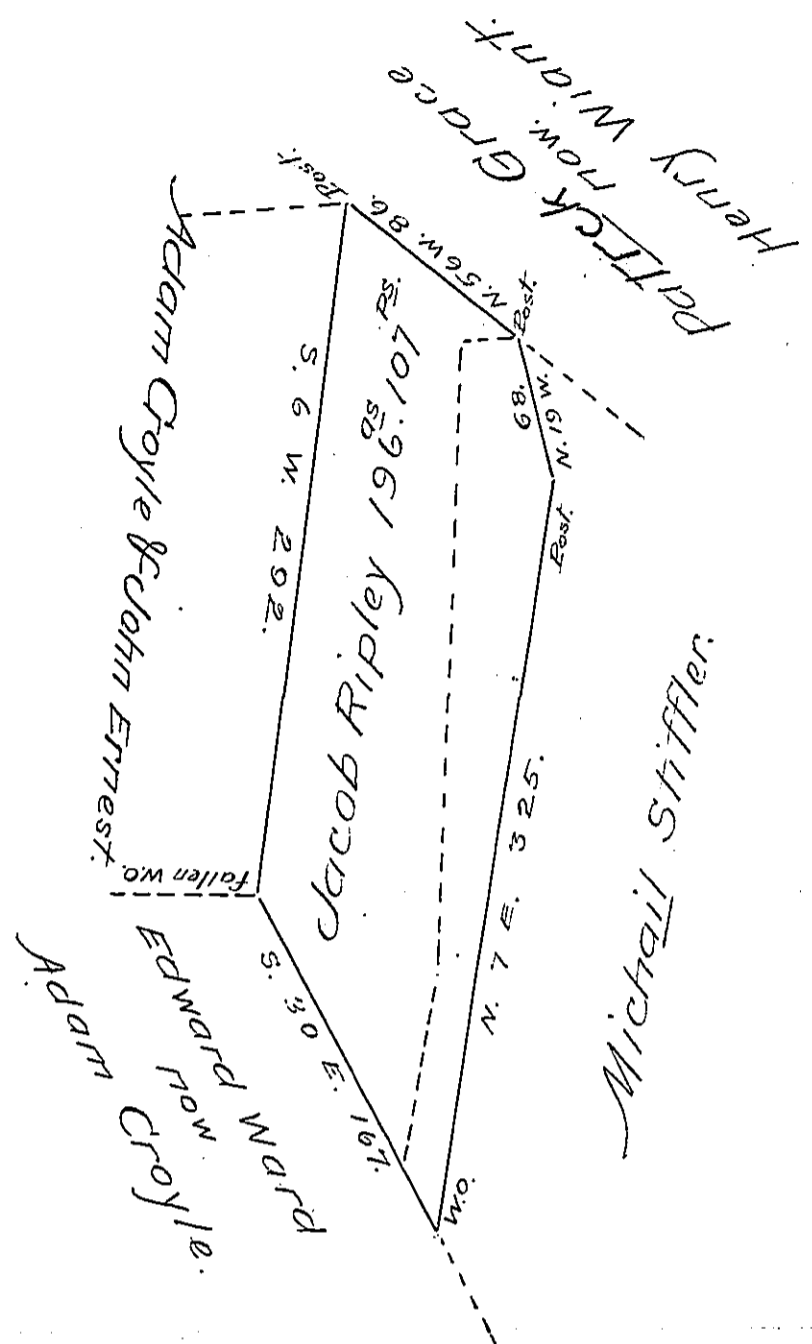 Henry Wiant.
now.
Patrick Grace
Post.
N. 56 W. 86.
Post.
N. 19 W.
68.
Post.
Adam Croyle & John Ernest.
S. 6 W. 292.
Jacob Ripley 196.107
as. ps.
N. 7 E. 325.
Michail Stiffler.
Fallen W.O.
S. 30 E. 167.
W.O.
Edward Ward
now
Adam Croyle.